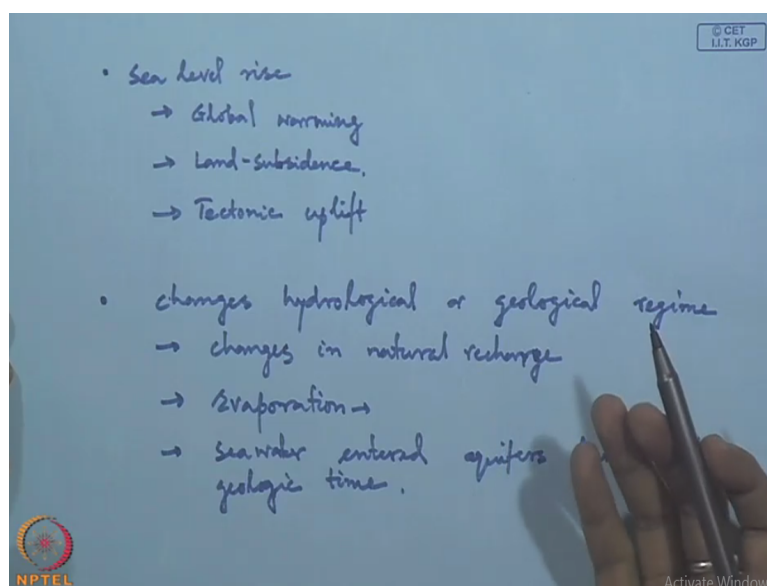 © CET
I.I.T. KGP
• Sea level rise
→ Global warming
→ Land-subsidence.
→ Tectonic uplift
• changes hydrological or geological regime
→ changes in natural recharge
→ Evaporation →
→ seawater entered aquifers
geologic time.
NPTEL
Activate Window